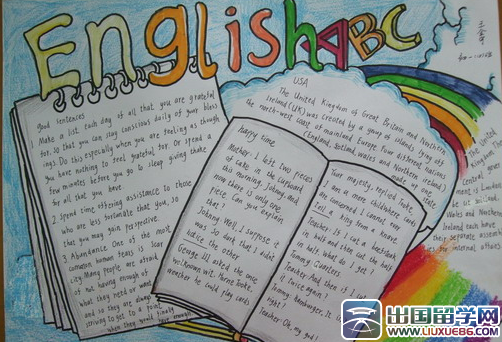 English ABC
good sentences
Make a list each day of all that you are grateful
for, so that you can stay conscious daily of your bless
ings. Do this especially when you are feeling as though
you have nothing to feel grateful for. Or spend a
few minutes before you go to sleep giving thanks
for all that you have
2 spend time offering assistance to those
who are less fortunate than you, so
that you may gain perspective.
3 Abundance One of the most
common human fears is scar
city Many people are afraid
of not having enough of
what they need or want
and so they are always
striving to get to a point
when they would finaly
have enough
happy time
Mother: I left two pieces
of cake in the cupboard
this morning, Johnny, and
now there is only one
piece. Can you explain
that?
Johnny: Well, I suppose it
was so dark that I didn't
notice the other
George III asked the one
Horne Tooke,
weather he could play cards
Your majesty, replied Tooke,
I am a more child where cards
are concerned. I cannot ever
tell a king from a knave.
Teacher: If I cut a beefsteak
in half and then cut the half
in half, what do I get?
Tommy: Quarters.
Teacher: And then if I cut
it twice again?
Tommy: hamburger,
Teacher: Oh, my god!
USA
The United Kingdom of Great Britain and Northern
Ireland (UK) was created by a group of islands lying off
the north-west coast of mainland Europe Four different nations
(England, Scotland, Wales and Northern Ireland)
made up one
state
The United
central
ment is
Wales and
Ireland each have
their separate
for internal affairs
出国留学网
www.liuxue86.com